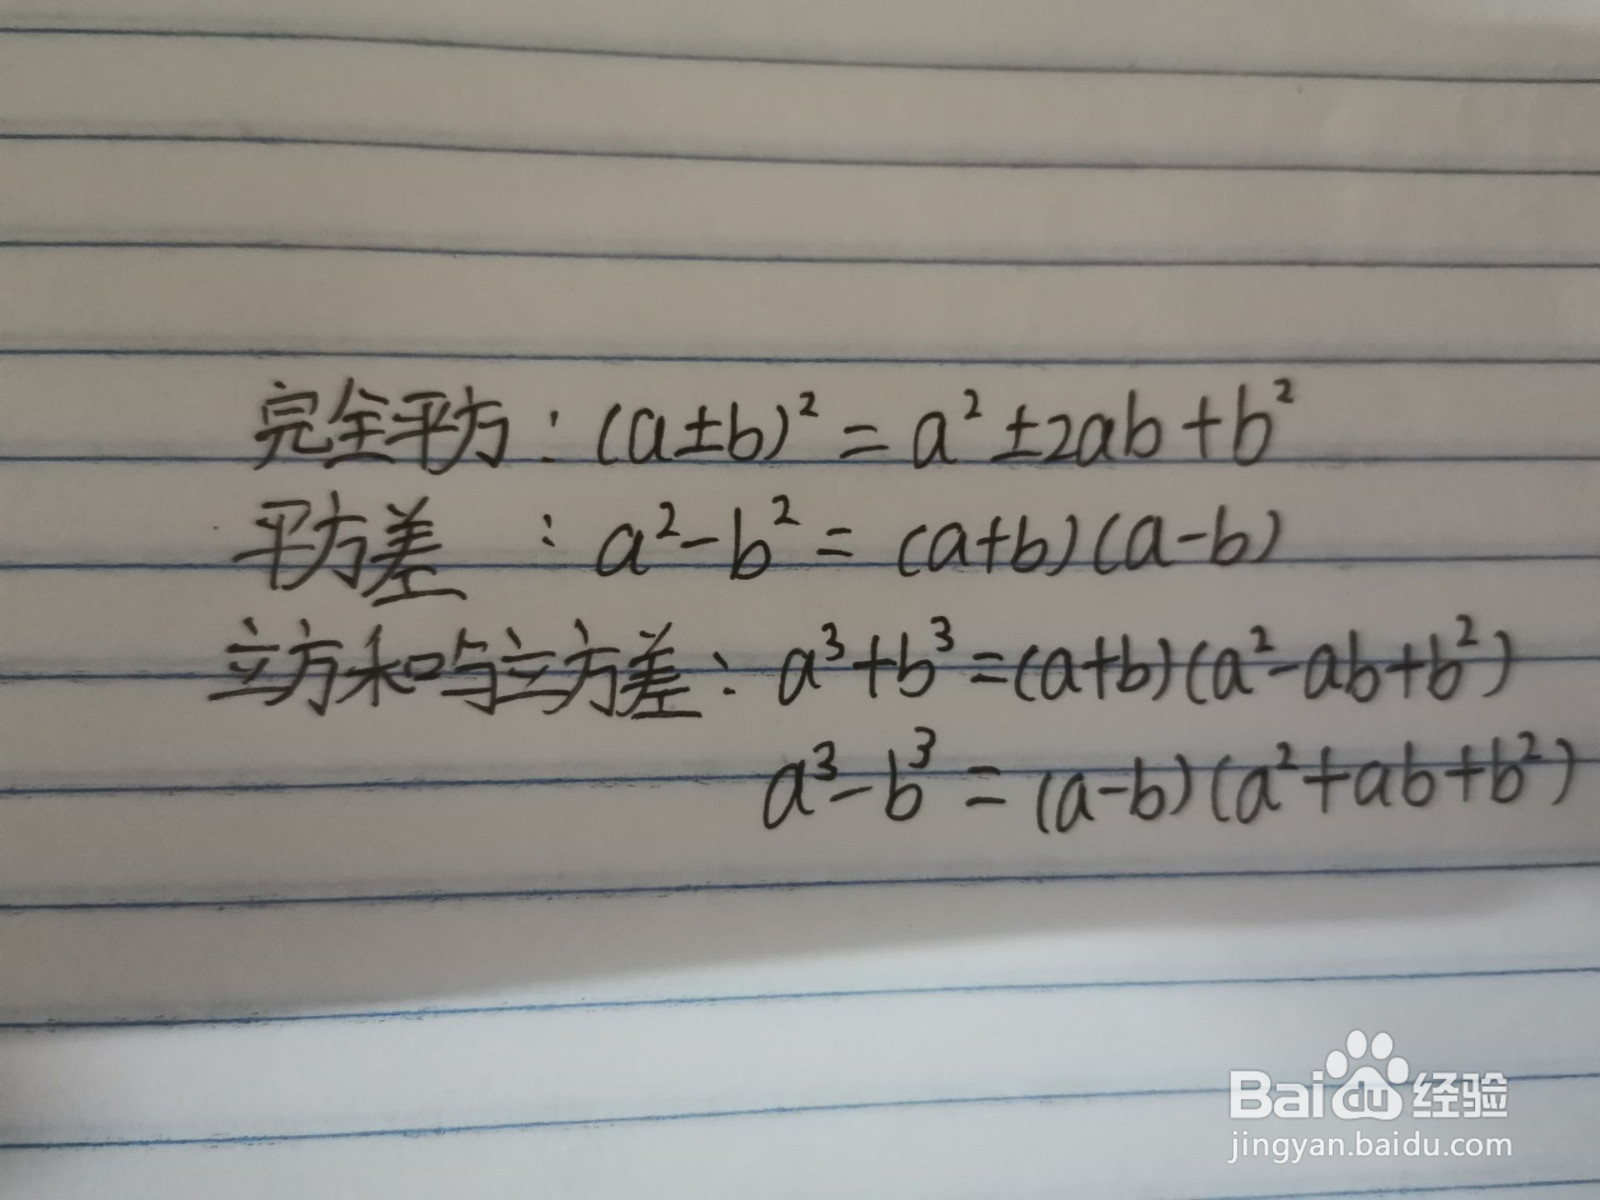 完全平方：(a±b)²=a²±2ab+b²
平方差：a²-b²=(a+b)(a-b)
立方和与立方差：a³+b³=(a+b)(a²-ab+b²)
a³-b³=(a-b)(a²+ab+b²)
Baidu经验
jingyan.baidu.com